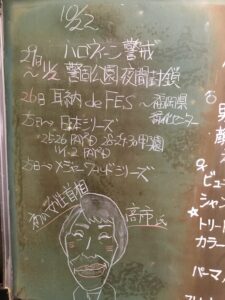 10/22
29日 ハロウィーン警戒
〜11/2 警固公園夜間封鎖
26日 耳納 de FES 〜福岡県
25日→ 日本シリーズ
25・26 PayPay 28・29・30甲子園
11/1・2 PayPay
25日→ メジャーワールドシリーズ
初の女性首相
高市氏
男
♀
ビュー
シャン
☆
トリート
カラー
パーマ